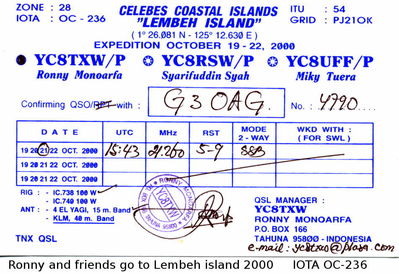 ZONE : 28
IOTA : OC - 236
CELEBES COASTAL ISLANDS
"LEMBEH ISLAND"
ITU : 54
GRID : PJ21OK
(1° 26.081 N - 125° 12.630 E)
EXPEDITION OCTOBER 19 - 22, 2000
YC8TXW/P YC8RSW/P YC8UFF/P
Ronny Monoarfa Syarifuddin Syah Miky Tuera
Confirming QSO/RPT with : G3OAG. No. : 4790...
DATE UTC MHz RST MODE 2 - WAY WKD WITH : (FOR SWL)
19 20 21 22 OCT. 2000 15:43 21.260 5-9 SSB
19 20 21 22 OCT. 2000
19 20 21 22 OCT. 2000
RIG : - IC.738 100 W
- IC.740 100 W
ANT : - 4 EL YAGI, 15 m Band
- KLM, 40 m Band.
TNX QSL
RONNY MONOARFA
QSL MANAGER :
YC8TXW
RONNY MONOARFA
P.O. BOX 166
TAHUNA 95800 - INDONESIA
e-mail : yc8txw@plasa.com
Ronny and friends go to Lembeh island 2000 IOTA OC-236